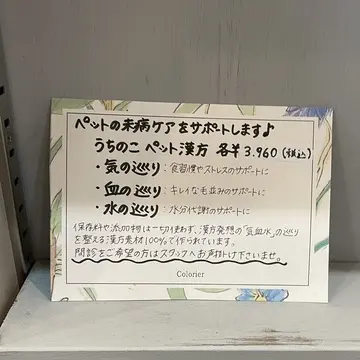 ペットの未病ケアをサポートします♪
うちのこ ペット漢方 各¥3.960(税込)
・気の巡り:食習慣やストレスのサポートに
・血の巡り:キレイな毛並みのサポートに
・水の巡り:水分代謝のサポートに
保存料や添加物は一切使わず、漢方発想の「気血水」の巡り
を整える漢方素材100%で作られています。
問診をご希望の方はスタッフへお声掛け下さいませ。
Colorier